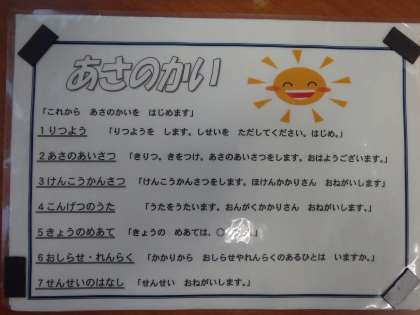 あさのかい
「これから　あさのかいを　はじめます」
１りつよう　「りつようを　します。しせいを　ただしてください。はじめ。」
２あさのあいさつ　「きりつ。きをつけ。あさのあいさつをします。おはようございます。」
３けんこうかんさつ　「けんこうかんさつをします。ほけんかかりさん　おねがいします。」
４こんげつのうた　「うたをうたいます。おんがくかかりさん　おねがいします。」
５きょうのめあて　「きょうの　めあては、〇
６おしらせ・れんらく　「かかりから　おしらせやれんらくのあるひとは　いますか。」
７せんせいのはなし　「せんせい　おねがいします。」